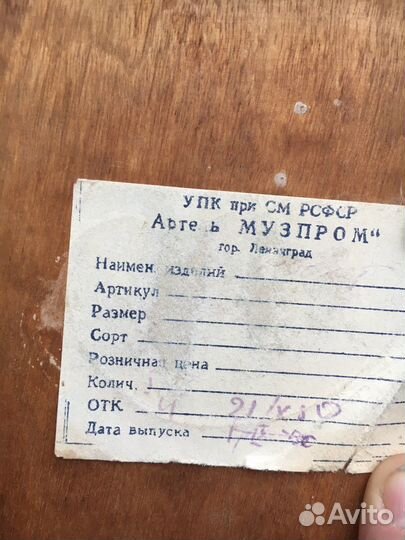 УПК при СМ РСФСР
Артель МУЗПРОМ"
гор. Ленинград
Наимен. изделий
Артикул
Размер
Сорт
Розничная цена
Колич. 1
ОТК 4
Дата выпуска
Avito